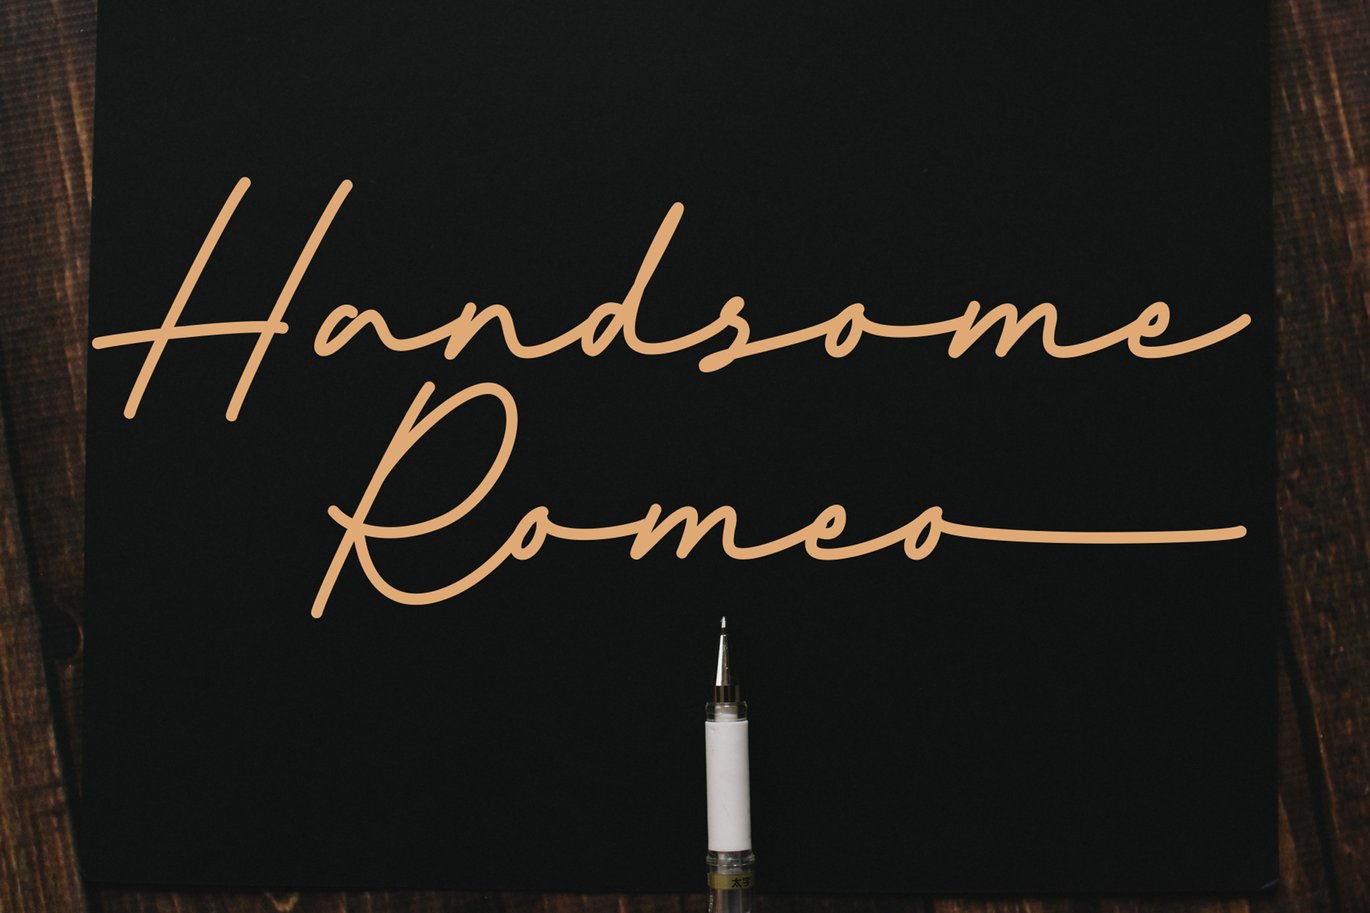 Handsome
Romeo
太字